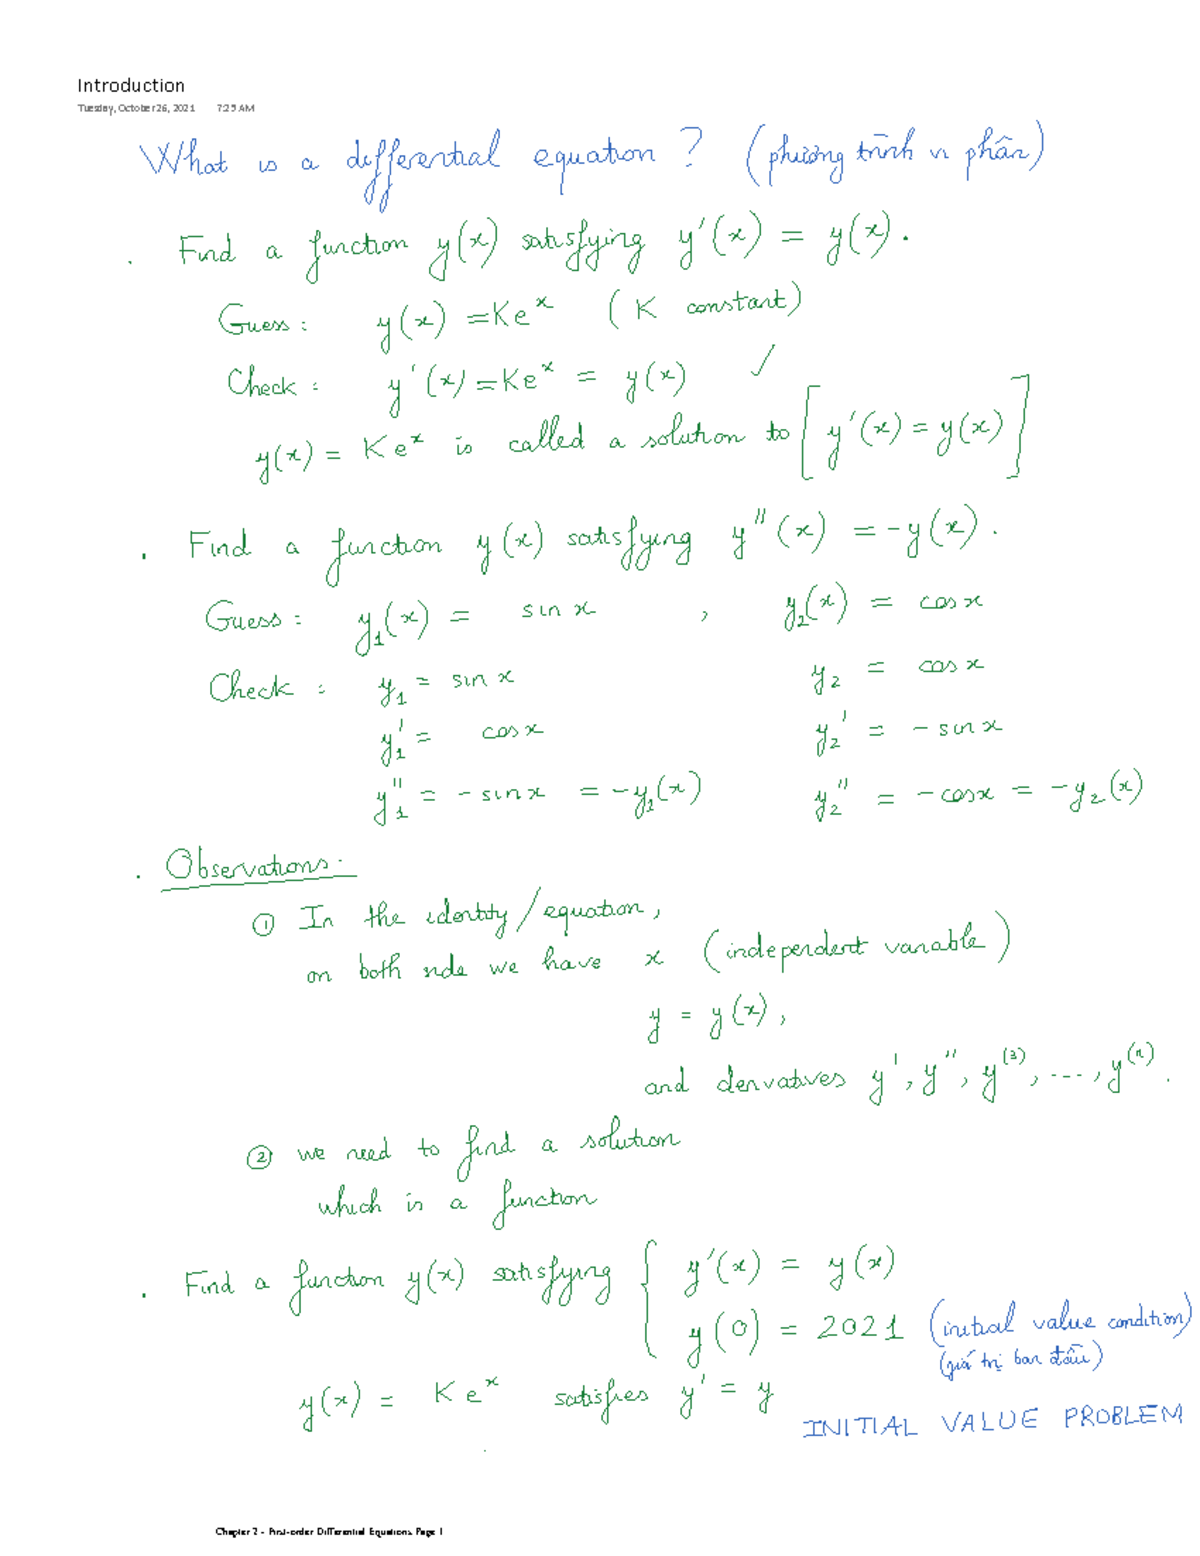 Introduction
Tuesday, October 26, 2021 7:25 AM
What is a differential equation ? (phương trình vi phân)
. Find a function y(x) satisfying y'(x) = y(x).
Guess : y(x) = Ke^x ( K constant)
Check : y'(x) = Ke^x = y(x) ✓
y(x) = K e^x is called a solution to [y'(x) = y(x)]
. Find a function y(x) satisfying y''(x) = -y(x).
Guess : y₁(x) = sin x , y₂(x) = cos x
Check : y₁ = sin x y₂ = cos x
y₁' = cos x y₂' = - sin x
y₁'' = - sin x = -y₁(x) y₂'' = - cos x = -y₂(x)
. Observations.
① In the identity/equation,
on both side we have x (independent variable)
y = y(x),
and derivatives y', y'', y^(3), ..., y^(n).
② we need to find a solution
which is a function
. Find a function y(x) satisfying { y'(x) = y(x)
y(0) = 2021 (initial value condition)
(giá trị ban đầu)
y(x) = K e^x satisfies y' = y
INITIAL VALUE PROBLEM
Chapter 2 - First-order Differential Equations Page 1